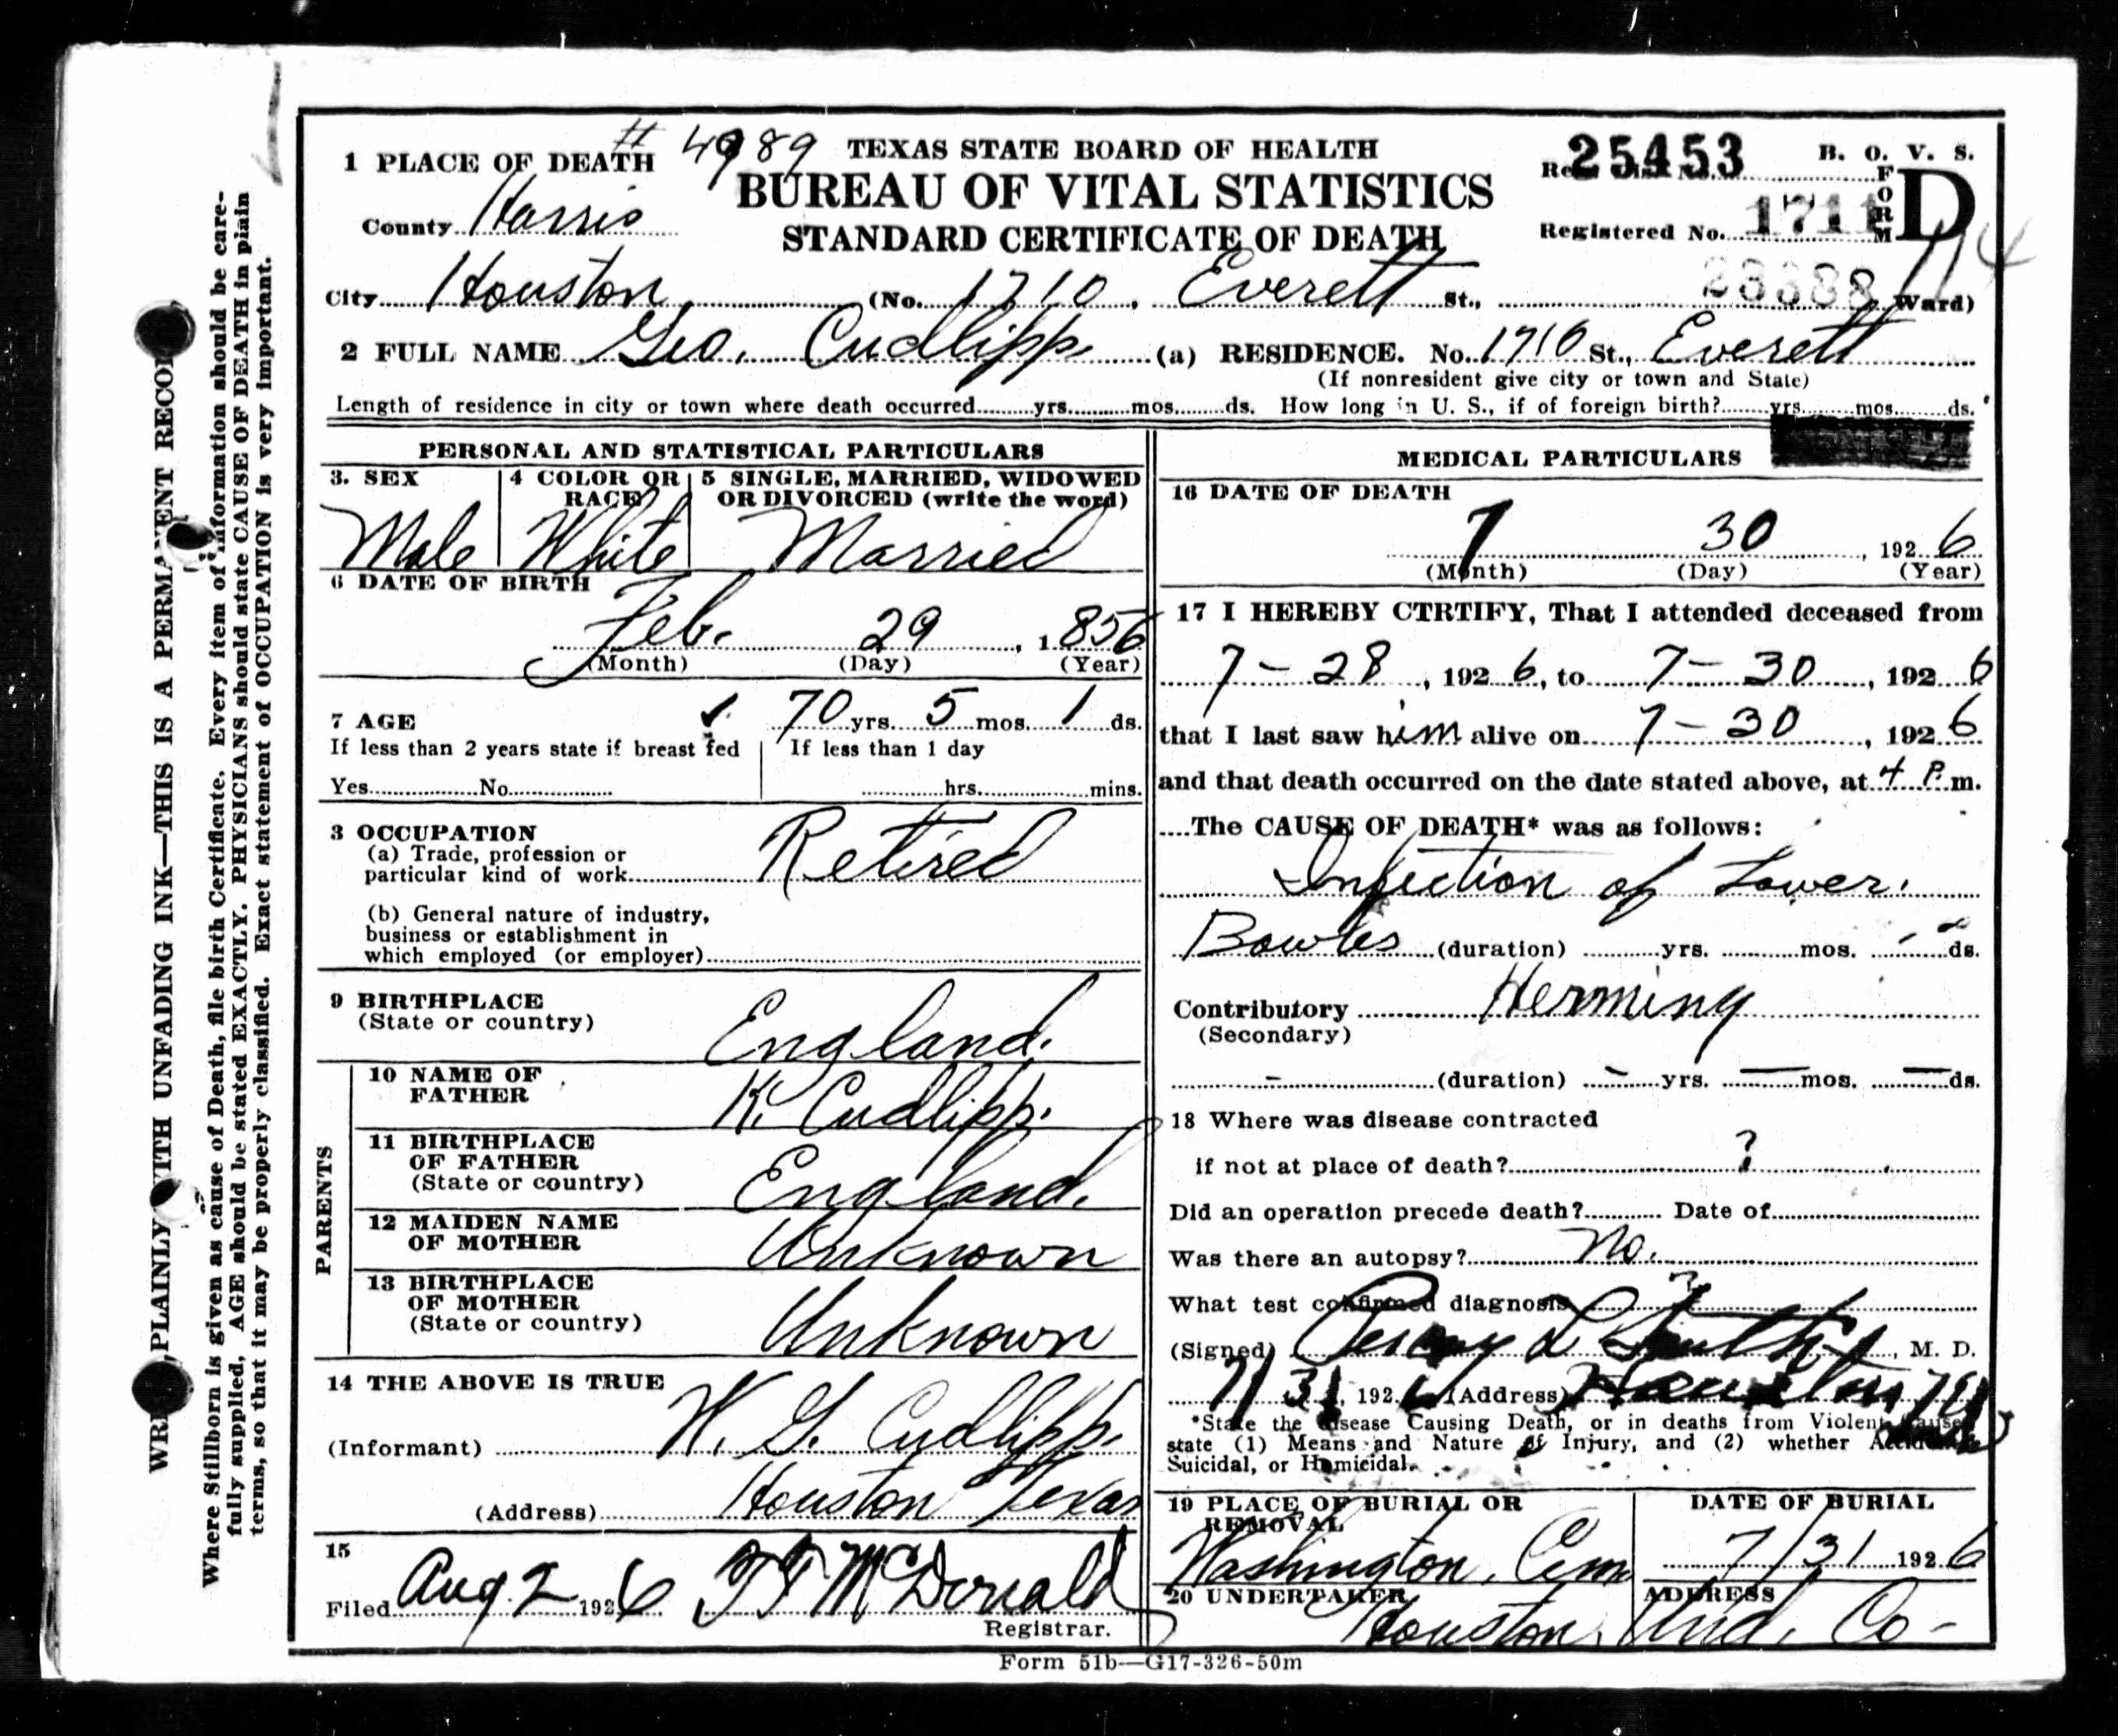 # 4989
1 PLACE OF DEATH
TEXAS STATE BOARD OF HEALTH
BUREAU OF VITAL STATISTICS
STANDARD CERTIFICATE OF DEATH
25453
B. O. V. S.
FORM D
Registered No. 1711
114
County Harris
City Houston (No. 1710, Everett St., Ward)
2 FULL NAME Geo. Cudlipp (a) RESIDENCE. No. 1710 St., Everett
(If nonresident give city or town and State)
Length of residence in city or town where death occurred yrs. mos. ds. How long in U. S., if of foreign birth? yrs. mos. ds.
PERSONAL AND STATISTICAL PARTICULARS
3. SEX
Male
4 COLOR OR RACE
White
5 SINGLE, MARRIED, WIDOWED OR DIVORCED (write the word)
Married
6 DATE OF BIRTH
Feb. 29, 1856
(Month) (Day) (Year)
7 AGE 70 yrs. 5 mos. 1 ds.
If less than 2 years state if breast fed
Yes No
If less than 1 day
hrs. mins.
3 OCCUPATION
(a) Trade, profession or
particular kind of work Retired
(b) General nature of industry,
business or establishment in
which employed (or employer)
9 BIRTHPLACE
(State or country) England.
PARENTS
10 NAME OF
FATHER K. Cudlipp.
11 BIRTHPLACE
OF FATHER
(State or country) England.
12 MAIDEN NAME
OF MOTHER Unknown
13 BIRTHPLACE
OF MOTHER
(State or country) Unknown
14 THE ABOVE IS TRUE
(Informant) W. G. Cudlipp.
(Address) Houston Texas
15
Filed Aug 2 1926 McDonald
Registrar.
MEDICAL PARTICULARS
16 DATE OF DEATH
7 30, 1926
(Month) (Day) (Year)
17 I HEREBY CTRTIFY, That I attended deceased from
7-28, 1926, to 7-30, 1926
that I last saw him alive on 7-30, 1926
and that death occurred on the date stated above, at 4 P. m.
The CAUSE OF DEATH* was as follows:
Infection of Lower.
Bowles (duration) yrs. mos. ds.
Contributory Herming
(Secondary)
- (duration) - yrs. - mos. - ds.
18 Where was disease contracted
if not at place of death? ?
Did an operation precede death? Date of
Was there an autopsy? No.
What test confirmed diagnosis ?
(Signed) Percy L Smith, M. D.
7/31, 1926 (Address) Houston
*State the Disease Causing Death, or in deaths from Violent Causes
state (1) Means and Nature of Injury, and (2) whether Accidental
Suicidal, or Homicidal.
19 PLACE OF BURIAL OR
REMOVAL
Washington. Cem
DATE OF BURIAL
7/31 1926
20 UNDERTAKER
ADDRESS
Houston. Und. Co-
Form 51b—G17-326-50m
PLAINLY WITH UNFADING INK—THIS IS A PERMANENT RECOR
Where Stillborn is given as cause of Death, file birth Certificate. Every item of information should be care-
fully supplied. AGE should be stated EXACTLY. PHYSICIANS should state CAUSE OF DEATH in plain
terms, so that it may be properly classified. Exact statement of OCCUPATION is very important.